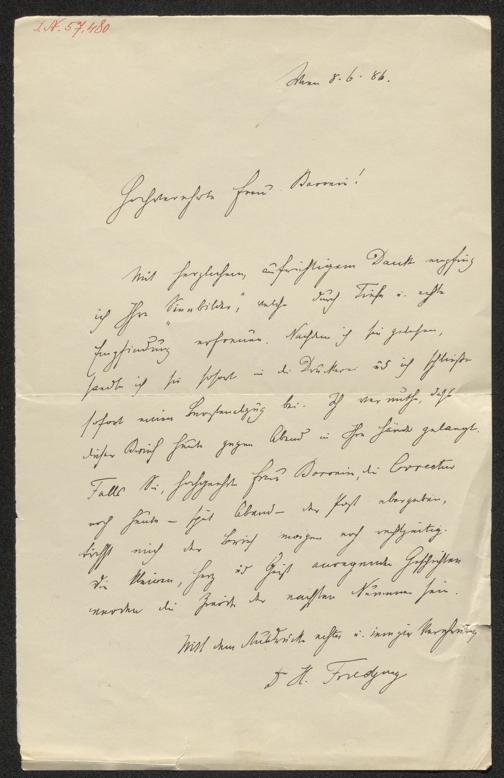 I.N. 57.480
Wien 8.6.86.
Hochverehrte Frau Baronin!
Mit herzlichem, aufrichtigem Dank empfing
ich Ihre "Sinnbilder", welche durch Tiefe u. echte
Empfindung erfreuen. Nachdem ich sie gelesen,
sandte ich sie sofort in die Druckerei und ich schließe
sofort einen Bürstenabzug bei. Ich vermuthe, daß
dieser Brief heute gegen Abend in Ihre Hände gelangt.
Falls Sie, hochgeehrte Frau Baronin, die Correctur
noch heute – spät Abend – der Post übergeben,
trifft mich der Brief morgen noch rechtzeitig.
Die kleinen, Herz und Geist anregende Geschichten
werden die Zierde der nächsten Nummer sein.
Mit dem Ausdrucke echter u. inniger Verehrung
Dr H.